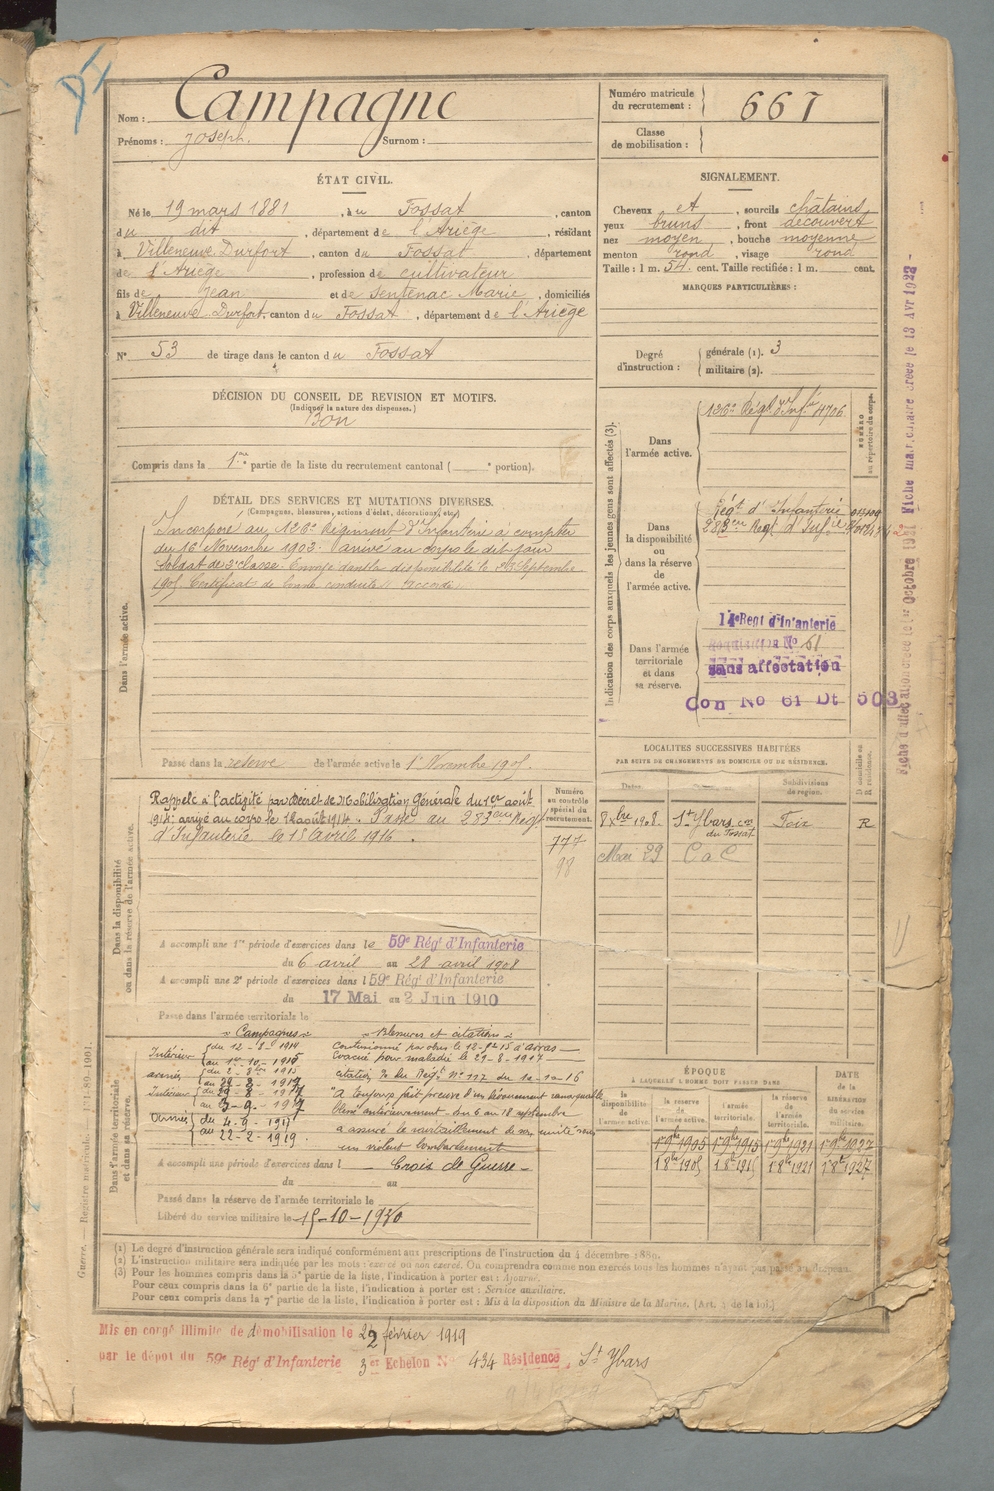 Nom : Campagne
Prénoms : Joseph. Surnom :
Numéro matricule du recrutement : 667
Classe de mobilisation :
ÉTAT CIVIL.
Né le 19 mars 1881, à u Fossat, canton
du dit, département de l'Ariège, résidant
à Villeneuve Durfort, canton du Fossat, département
de l'Ariège, profession de cultivateur
fils de Jean et de Sentenac Marie, domiciliés
à Villeneuve Durfort, canton du Fossat, département de l'Ariège
N° 53 de tirage dans le canton du Fossat
SIGNALEMENT.
Cheveux et, sourcils châtains
yeux bruns, front découvert
nez moyen, bouche moyenne
menton rond, visage rond
Taille : 1 m. 54 cent. Taille rectifiée : 1 m. cent.
MARQUES PARTICULIÈRES :
Degré d'instruction : générale (1). 3
militaire (2).
DÉCISION DU CONSEIL DE REVISION ET MOTIFS.
(Indiquer la nature des dispenses.)
Bon
Compris dans la 1re partie de la liste du recrutement cantonal ( e portion).
DÉTAIL DES SERVICES ET MUTATIONS DIVERSES.
(Campagnes, blessures, actions d'éclat, décorations, etc.)
Dans l'armée active.
Incorporé au 126e Régiment d'Infanterie à compter
du 16 Novembre 1903. arrivé au corps le dit jour
Soldat de 2e classe. Envoyé dans la disponibilité le 23 Septembre
1905 Certificat de bonne conduite accordé.
Passé dans la réserve de l'armée active le 1er Novembre 1905.
Indication des corps auxquels les jeunes gens sont affectés (3).
NUMÉRO au répertoire du corps.
Dans l'armée active.
126e Régt d'Infie 4706
Dans la disponibilité ou dans la réserve de l'armée active.
Régt d'Infanterie
283eme Regt d'Infie
Dans l'armée territoriale et dans sa réserve.
14e Regt d'Infanterie
No 61
sans affectation
Con No 61 Dt 503
Fiche d'affectation créée le 1er Octobre 1921 Fiche matriculaire créée le 13 Avr 1923 -
LOCALITÉS SUCCESSIVES HABITÉES
PAR SUITE DE CHANGEMENTS DE DOMICILE OU DE RÉSIDENCE.
Dates. Subdivisions de région. D domicile ou R résidence.
8 xbre 1908. St Ybars con du Fossat Foix R
Mai 29 C a C
Dans la disponibilité ou dans la réserve de l'armée active.
Numéro au contrôle spécial du recrutement.
777
98
Rappelé à l'activité par Décret de Mobilisation Générale du 1er août
1914. arrivé au corps le 12 août 1914. Passé au 283eme Régt
d'Infanterie le 15 avril 1916.
A accompli une 1re période d'exercices dans le 59e Régt d'Infanterie
du 6 avril au 28 avril 1908
A accompli une 2e période d'exercices dans l 59e Régt d'Infanterie
du 17 Mai au 2 Juin 1910
Passé dans l'armée territoriale le
Dans l'armée territoriale et dans sa réserve.
Campagnes Blessures et citations
Intérieur du 12-8-1914
au 1er-10-1915
armées du 2-8bre 1915
au 29-8-1917
Intérieur du 29-8-1917
au 3-9-1917
Armées du 4-9-1917
au 22-2-1919
Contusionné par obus le 12-8bre 15 d'Arras
Evacué pour maladie le 29-8-1917
citation du Régt N° 117 du 10-10-16
"A toujours fait preuve d'un dévouement remarquable
Blessé antérieurement - du 6 au 18 septembre
a assuré le ravitaillement de son unité sous
un violent bombardement
Croix de Guerre
A accompli une période d'exercices dans l
du au
Passé dans la réserve de l'armée territoriale le
Libéré du service militaire le 15-10-1930
ÉPOQUE
À LAQUELLE L'HOMME DOIT PASSER DANS
la disponibilité de l'armée active. la réserve de l'armée active. l'armée territoriale. la réserve de l'armée territoriale.
DATE de la LIBÉRATION du service militaire.
1er 9bre 1905 1er 9bre 1915 1er 9bre 1921 1er 9bre 1927
1er 8bre 1905 1er 8bre 1915 1er 8bre 1921 1er 8bre 1927
(1) Le degré d'instruction générale sera indiqué conformément aux prescriptions de l'instruction du 4 décembre 1889.
(2) L'instruction militaire sera indiquée par les mots : exercé ou non exercé. On comprendra comme non exercés tous les hommes n'ayant pas passé au drapeau.
(3) Pour les hommes compris dans la 5e partie de la liste, l'indication à porter est : Ajourné.
Pour ceux compris dans la 6e partie de la liste, l'indication à porter est : Service auxiliaire.
Pour ceux compris dans la 7e partie de la liste, l'indication à porter est : Mis à la disposition du Ministre de la Marine. (Art. 4 de la loi.)
Guerre. — Registre matricule.
Mis en congé illimité de démobilisation le 22 février 1919
par le dépôt du 59e Régt d'Infanterie 3e Echelon N° 434 Résidence, St Ybars